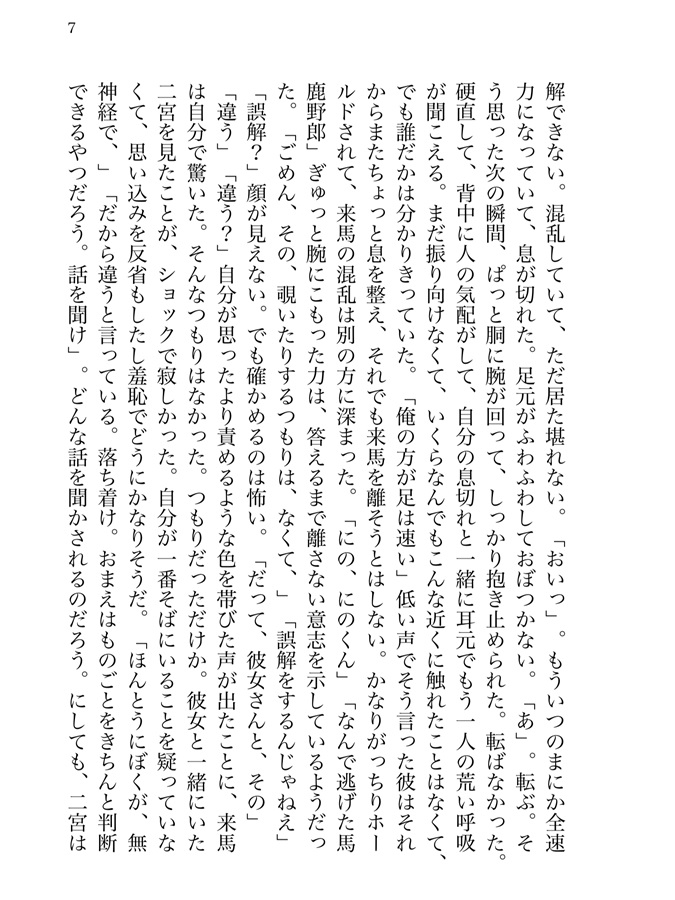 7
解できない。混乱していて、ただ居た堪れない。「おいっ」。もういつのまにか全速
力になっていて、息が切れた。足元がふわふわしておぼつかない。「あ」。転ぶ。そ
う思った次の瞬間、ぱっと胴に腕が回って、しっかり抱き止められた。転ばなかった。
硬直して、背中に人の気配がして、自分の息切れと一緒に耳元でもう一人の荒い呼吸
が聞こえる。まだ振り向けなくて、いくらなんでもこんな近くに触れたことはなくて、
でも誰だかは分かりきっていた。「俺の方が足は速い」低い声でそう言った彼はそれ
からまたちょっと息を整え、それでも来馬を離そうとはしない。かなりがっちりホー
ルドされて、来馬の混乱は別の方に深まった。「にの、にのくん」「なんで逃げた馬
鹿野郎」ぎゅっと腕にこもった力は、答えるまで離さない意志を示しているようだっ
た。「ごめん、その、覗いたりするつもりは、なくて、」「誤解をするんじゃねえ」
「誤解？」顔が見えない。でも確かめるのは怖い。「だって、彼女さんと、その」
「違う」「違う？」自分が思ったより責めるような色を帯びた声が出たことに、来馬
は自分で驚いた。そんなつもりはなかった。つもりだっただけか。彼女と一緒にいた
二宮を見たことが、ショックで寂しかった。自分が一番そばにいることを疑っていな
くて、思い込みを反省もしたし羞恥でどうにかなりそうだ。「ほんとうにぼくが、無
神経で、」「だから違うと言っている。落ち着け。おまえはものごとをきちんと判断
できるやつだろう。話を聞け」。どんな話を聞かされるのだろう。にしても、二宮は